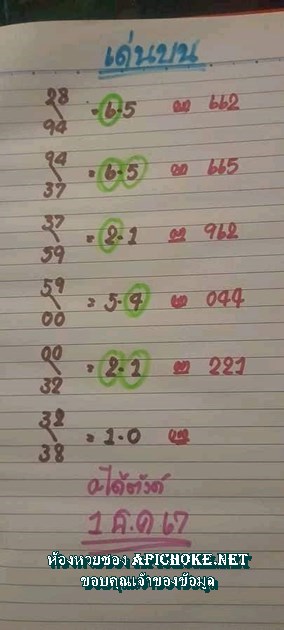 เด่นบน
28
94 = 6·5 ๗ 662
94
37 = 6·5 ๗ 665
37
59 = 2·1 ๗ 962
59
00 = 5·4 ๗ 044
00
32 = 2·1 ๗ 221
32
38 = 1·0 ๗
ได้ตังค์
1 ส.ค 67
ห้องหวยซอง APICHOKE.NET
ขอบคุณเจ้าของข้อมูล